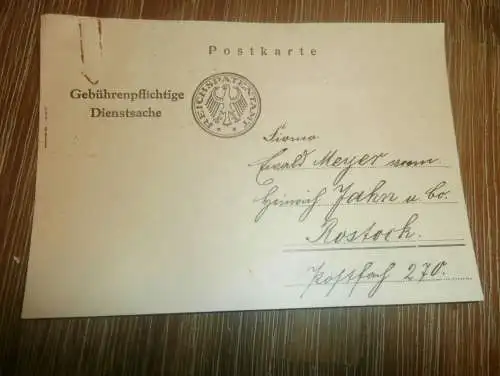 Postkarte
Gebührenpflichtige
Dienstsache
REICHSPATENTAMT
Firma
Ewald Meyer vorm
Heinrich Jahn u Co.
Rostock.
Postfach 270.